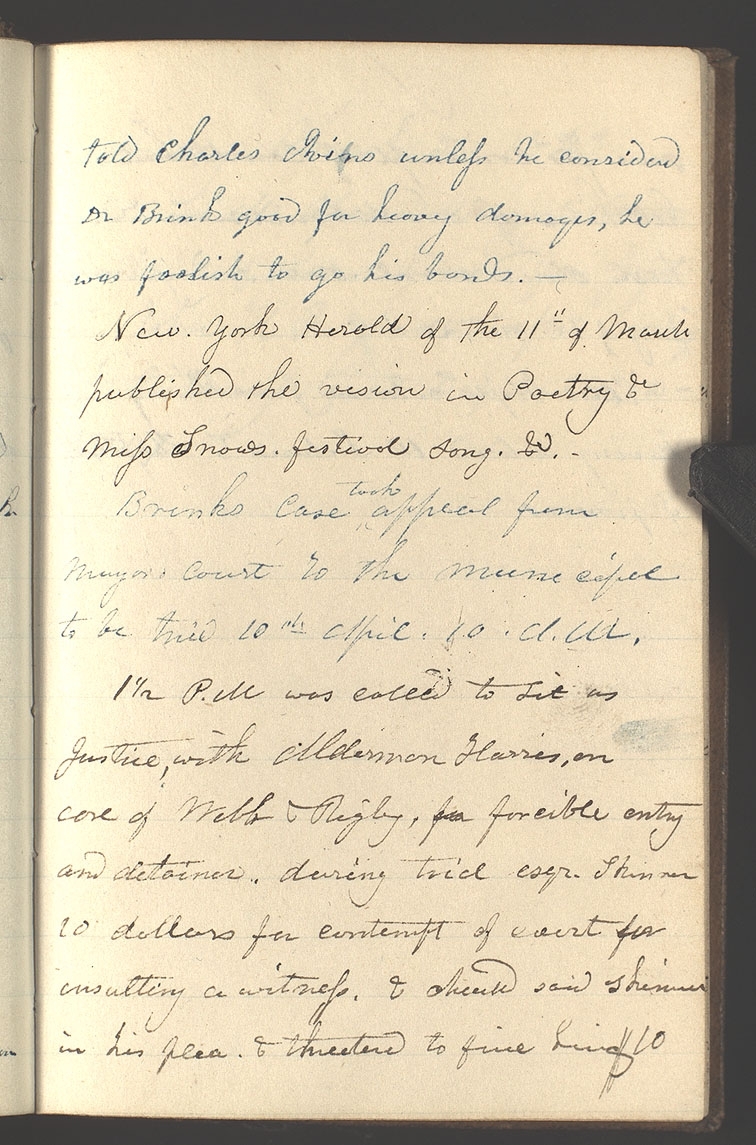 told Charles Ivins unless he considered
Dr Brink good for heavy damages, he
was foolish to go his bonds. —
New. York Herald of the 11" of March
published the vision in Poetry &
Miss Snows. festival song. &c. -
Brinks Case took appeal from
Mayors Court to the municipal
to be tried 10th April. 10. A.M.
1½ P.M was called to sit as
Justice, with Alderman Harris, on
case of Webb & Rigby, for forcible entry
and detainer. during trial esqr. Skinner
10 dollars for contempt of court for
insulting a witness. & checkd said Skinner
in his plea. & threatend to fine him $10